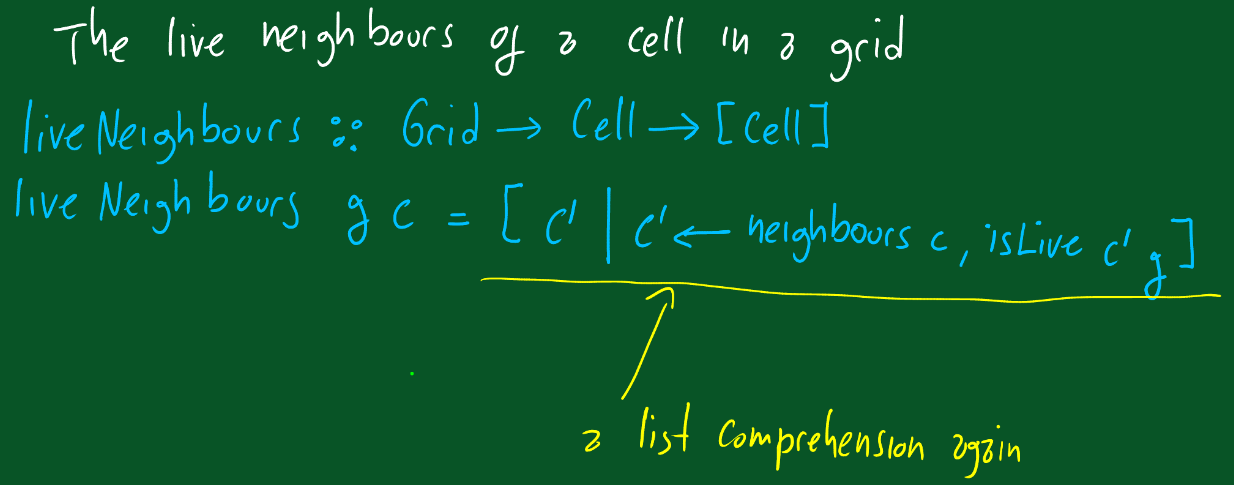 The live neighbours of a cell in a grid
liveNeighbours :: Grid → Cell → [Cell]
liveNeighbours g c = [ c' | c' ← neighbours c, isLive c' g ]
a list comprehension again